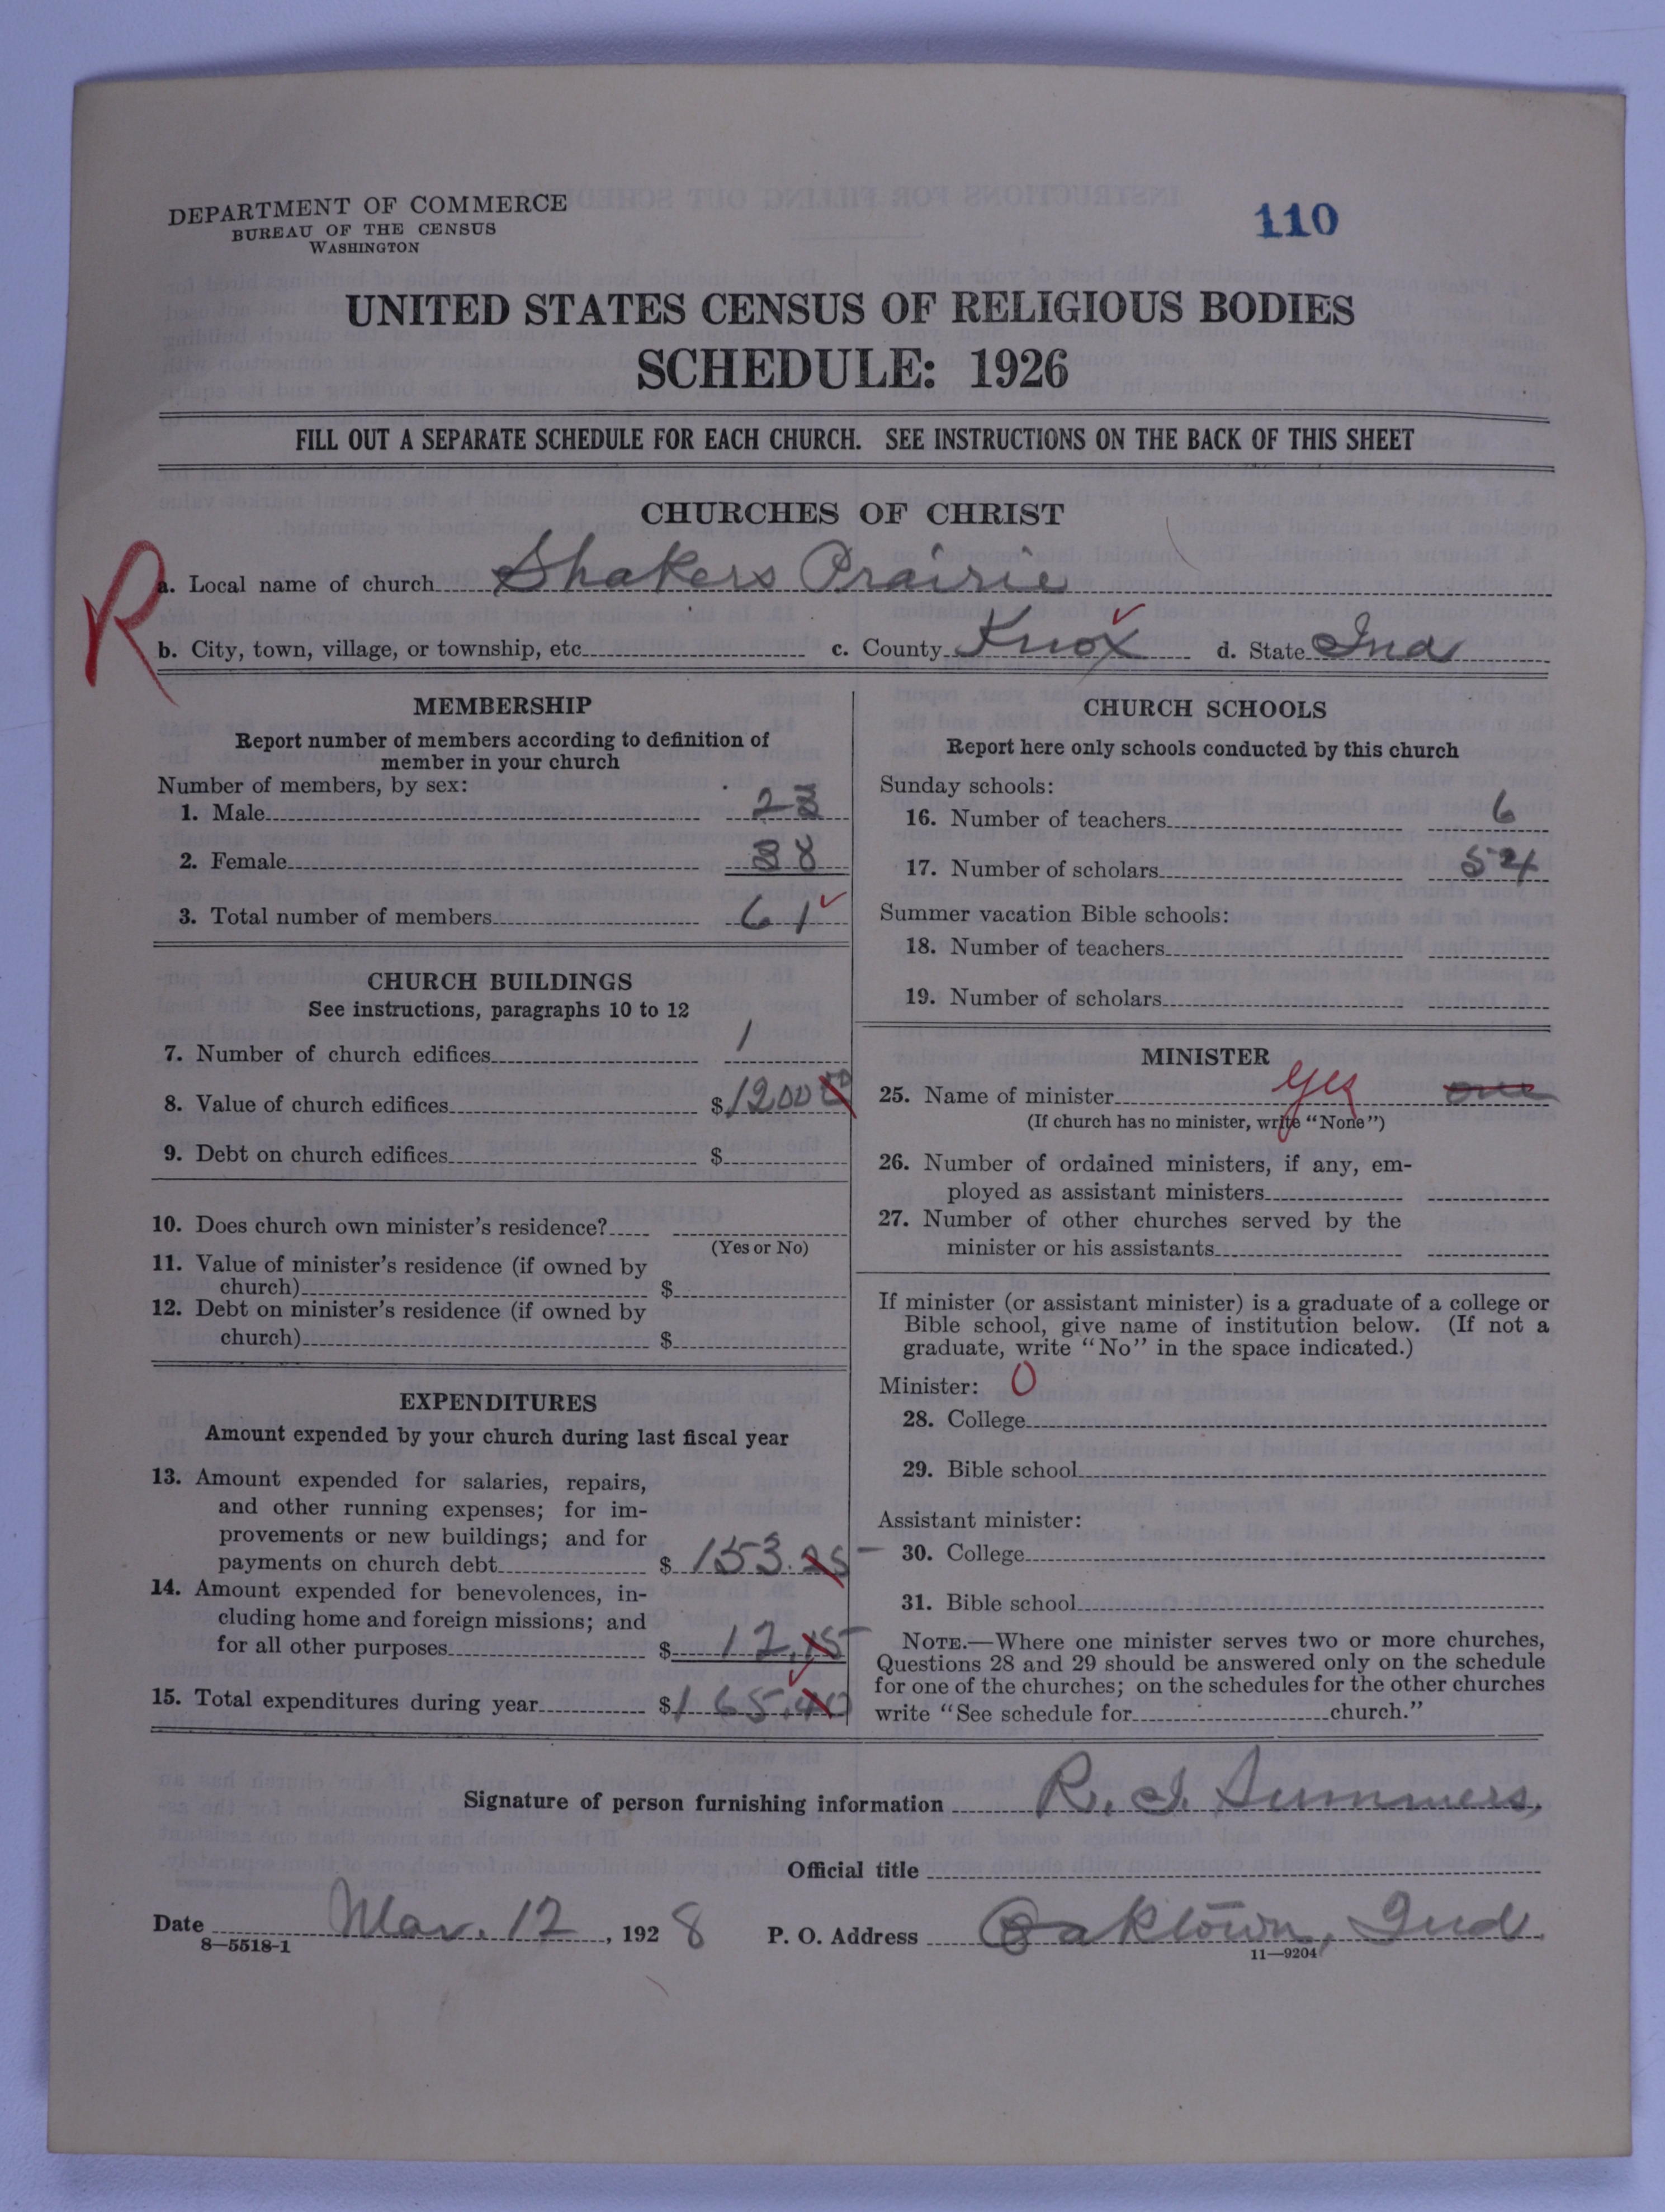 DEPARTMENT OF COMMERCE
BUREAU OF THE CENSUS
WASHINGTON
110
UNITED STATES CENSUS OF RELIGIOUS BODIES
SCHEDULE: 1926
FILL OUT A SEPARATE SCHEDULE FOR EACH CHURCH. SEE INSTRUCTIONS ON THE BACK OF THIS SHEET
CHURCHES OF CHRIST
R
a. Local name of church Shakers Prairie
b. City, town, village, or township, etc. c. County Knox d. State Ind
MEMBERSHIP
Report number of members according to definition of
member in your church
Number of members, by sex:
1. Male 23
2. Female 38
3. Total number of members 61
CHURCH BUILDINGS
See instructions, paragraphs 10 to 12
7. Number of church edifices 1
8. Value of church edifices $1200 00
9. Debt on church edifices $
10. Does church own minister's residence?
(Yes or No)
11. Value of minister's residence (if owned by
church) $
12. Debt on minister's residence (if owned by
church) $
EXPENDITURES
Amount expended by your church during last fiscal year
13. Amount expended for salaries, repairs,
and other running expenses; for im-
provements or new buildings; and for
payments on church debt $153.25
14. Amount expended for benevolences, in-
cluding home and foreign missions; and
for all other purposes $12.15
15. Total expenditures during year $165.40
CHURCH SCHOOLS
Report here only schools conducted by this church
Sunday schools:
16. Number of teachers 6
17. Number of scholars 54
Summer vacation Bible schools:
18. Number of teachers
19. Number of scholars
MINISTER
25. Name of minister yes one
(If church has no minister, write "None")
26. Number of ordained ministers, if any, em-
ployed as assistant ministers
27. Number of other churches served by the
minister or his assistants
If minister (or assistant minister) is a graduate of a college or
Bible school, give name of institution below. (If not a
graduate, write "No" in the space indicated.)
Minister: 0
28. College
29. Bible school
Assistant minister:
30. College
31. Bible school
NOTE.—Where one minister serves two or more churches,
Questions 28 and 29 should be answered only on the schedule
for one of the churches; on the schedules for the other churches
write "See schedule for church."
Signature of person furnishing information R. I. Summers,
Official title
Date Mar. 12, 1928 P. O. Address Oaktown, Ind.
8—5518-1 11—9204